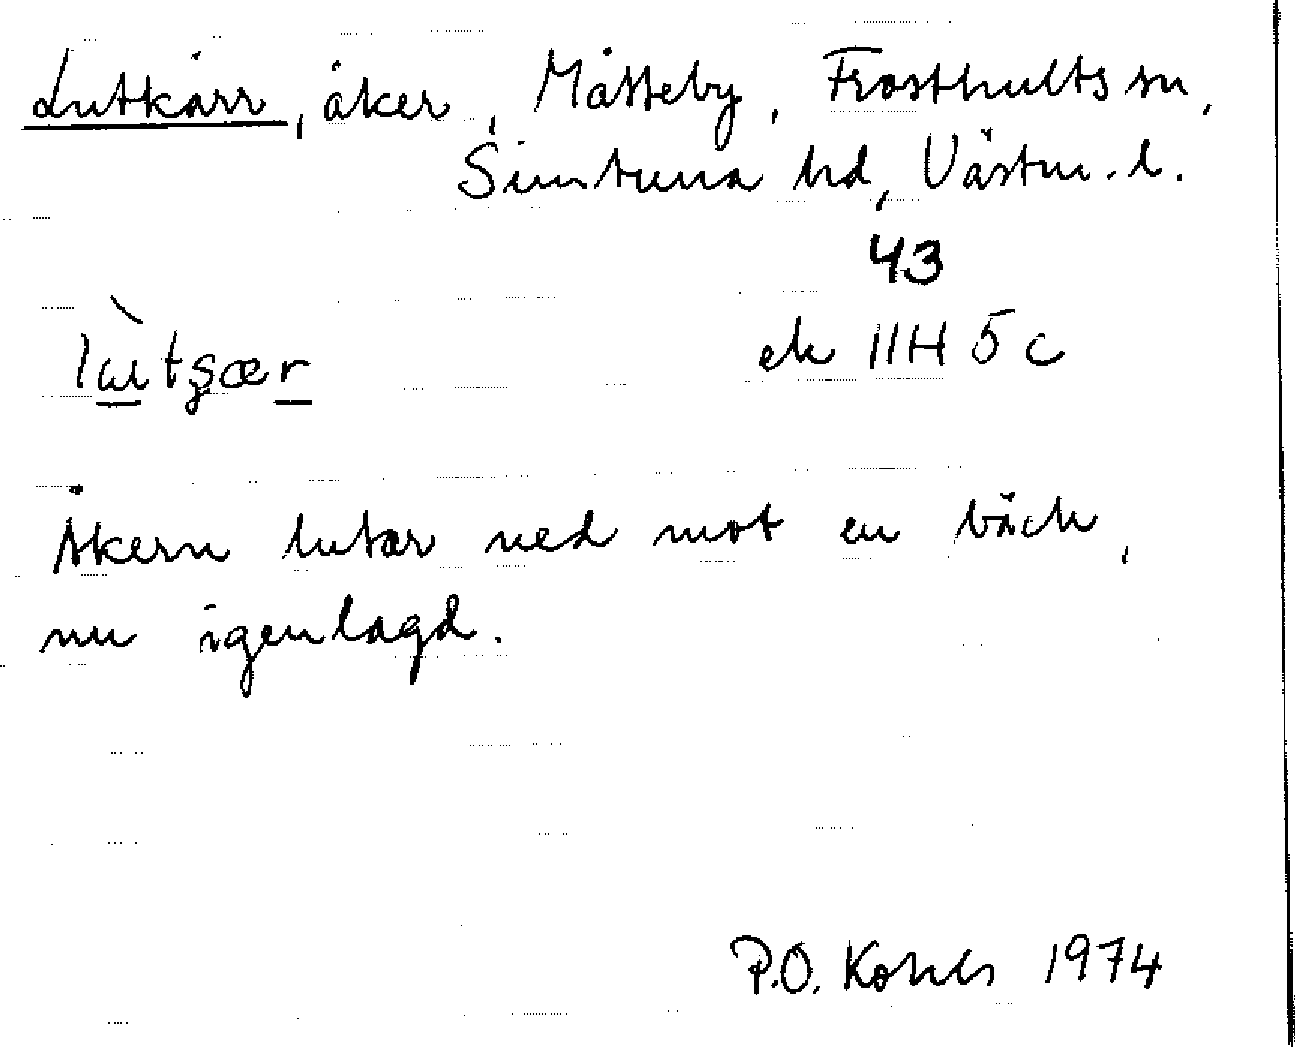 Lutkärr, åker, Måsteby, Frösthults sn,
Simtuna hd, Västm. l.
43
lùtʂær
ek 11H 5c
Åkern lutar ned mot en bäck,
nu igenlagd.
P.O. 1974